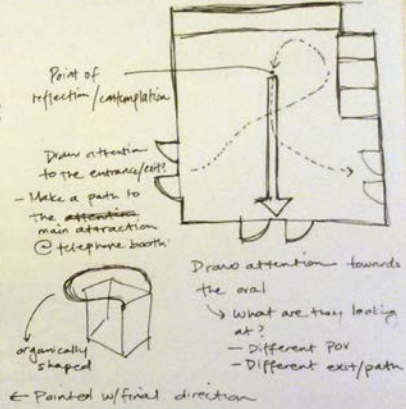 Point of
reflection/contemplation
Draw attention
to the entrance/exit?
- Make a path to
the attention
main attraction
@ telephone booth
organically
shaped
Draws attention towards
the oval
↳ What are they looking
at?
- Different POV
- Different exit/path
← Pointed w/final direction